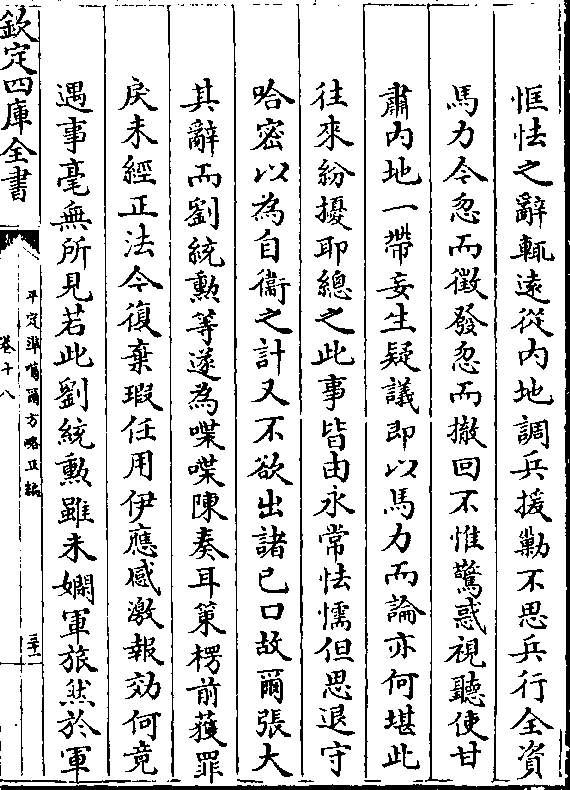 恇怯之辭輒遠從内地調兵援勦不思兵行全資
馬力令忽而徵發忽而撤回不惟驚惑視聽使甘
肅内地一帶妄生疑議即以馬力而論亦何堪此
往來紛擾耶總之此事皆由永常怯懦但思退守
哈密以為自衞之計又不欲出諸已口故爾張大
其辭而劉統勲等遂為喋喋陳奏耳策楞前獲罪
戾未經正法令復棄瑕任用伊應感激報効何竟
遇事毫無所見若此劉統勲雖未嫺軍旅然於軍
欽定四庫全書
平定凖噶爾方略正編
卷十八